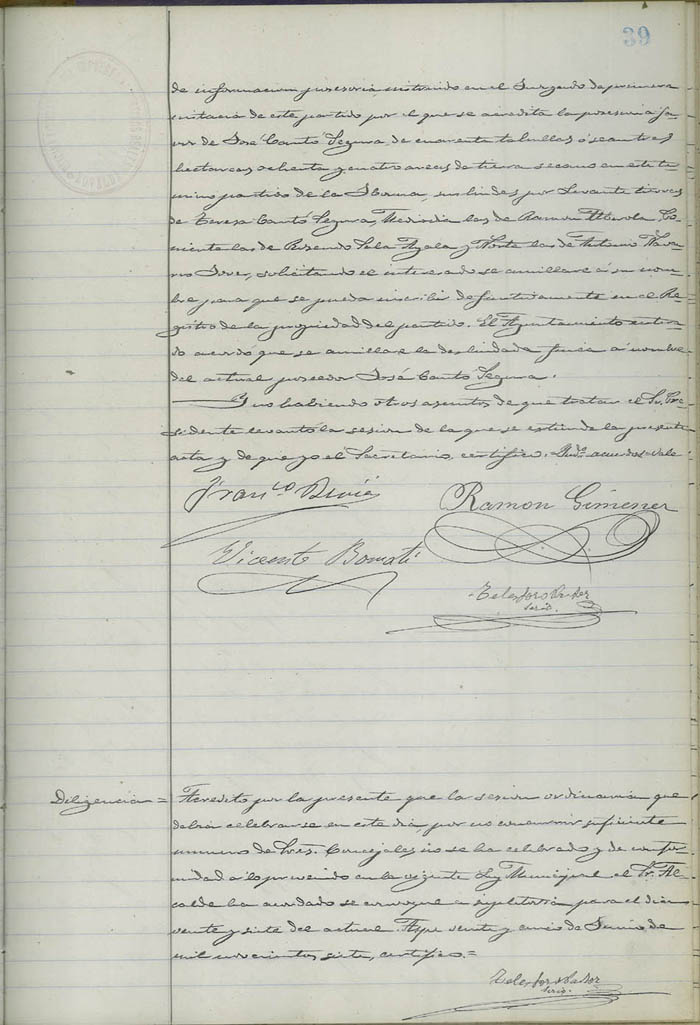 39
de informacion posesoria instruido en el Juzgado de primera
instacia de este partido por el que se acredita la posesion á fa-
vor de José Cantó Segura, de cuarenta tahullas ó sean tres
hectareas ochenta y cuatro areas de tierra secano en este te-
mino partido de la lindes por Levante tierras
de Teresa Cantó Segura, Mediodia las de Ramon Alberola, Po-
niente las de Rosendo Sala Ayala y Norte las de Antonio Nava-
rro Jover, solicitando el interesado se amillare á su nom-
bre para que se pueda inscribir definitivamente en el Re-
gistro de la propiedad del partido. El Ayuntamiento entera-
do acordo que se amillare la deslindada finca á nombre
del actual poseedor José Cantó Segura.
Y no habiendo otros asuntos de que tratar el Sr. Pre-
sidente levantó la sesion de la que se estiende la presente
acta y de que yo el Secretario, certifico. acuerdos = vale
Franco
Ramon Gimenez
Vicente Bonmati
Srio.
Diligencia = Acredito por la presente que la sesion ordinaria que
debia celebrarse en este dia, por no concurrir suficiente
numero de Sres. Concejales, no se ha celebrado y de confor-
midad á lo prevenido en la vigente Ley Municipal el Sr. Al-
calde ha acordado se convoque a supletoria para el dia
vente y siete del actual. Aspe vente y cinco de Junio de
mil novecientos siete, certifico =
Srio.